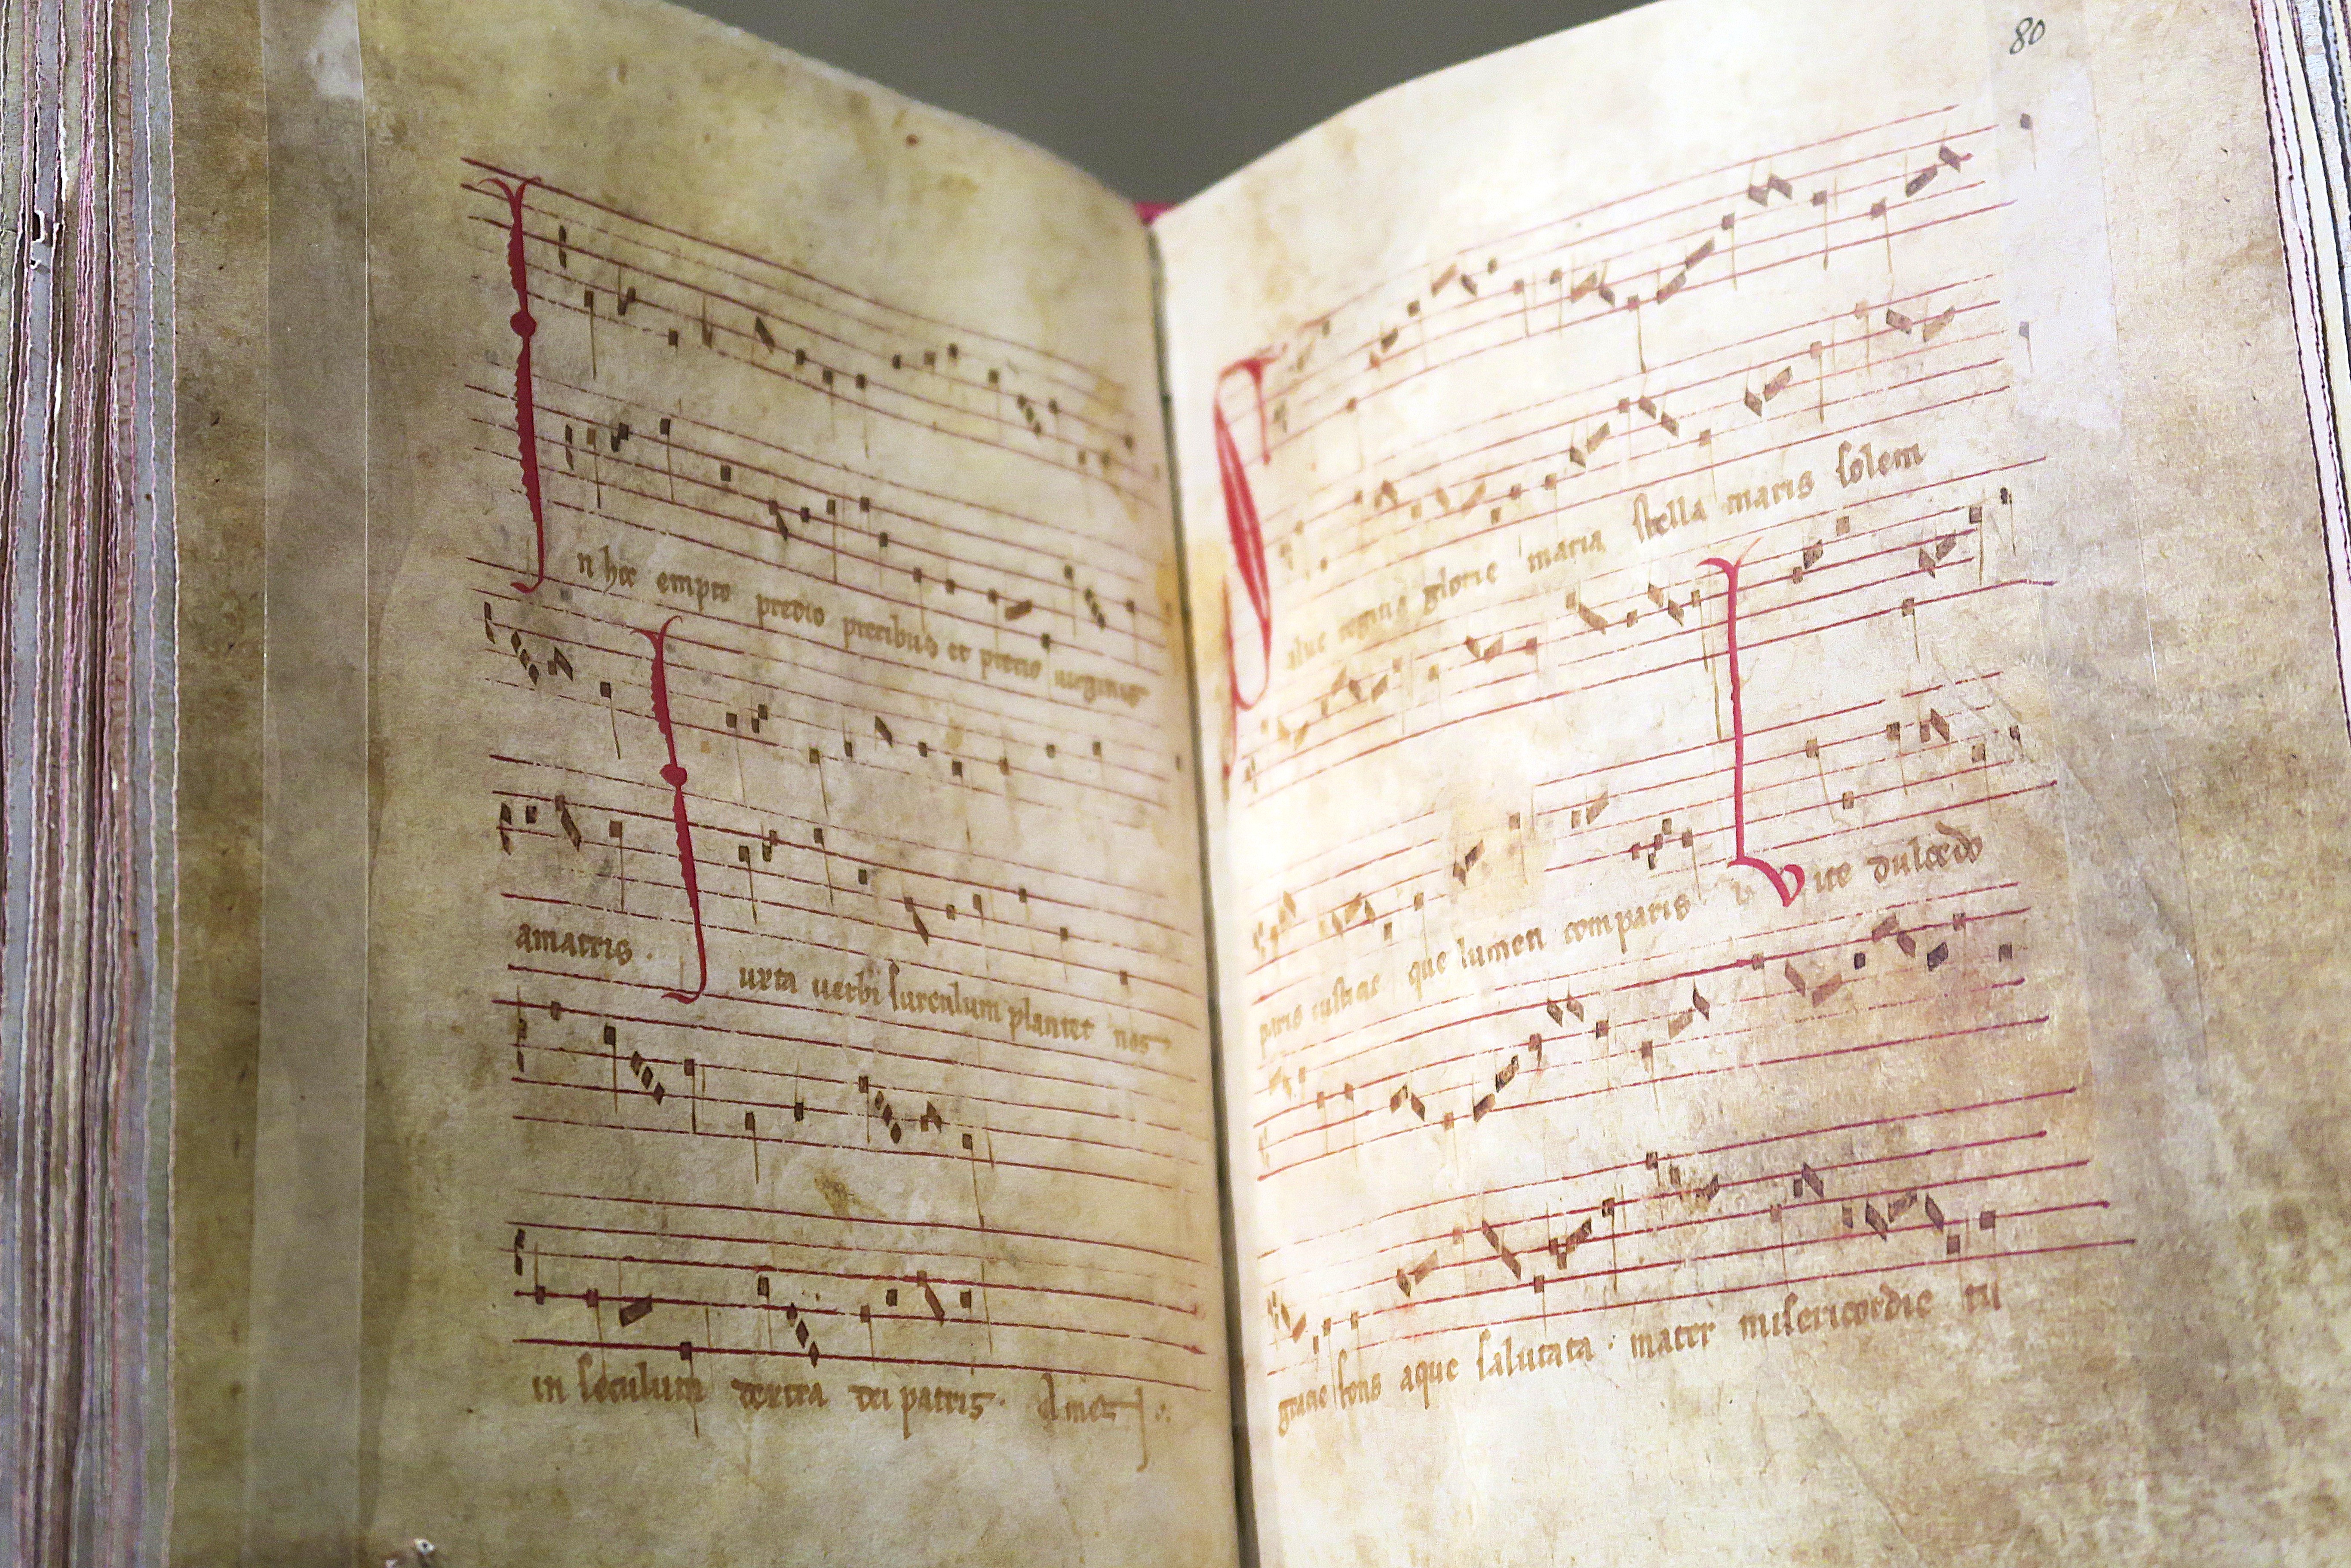 In hoc empto predio precibus et preciis uirginis
amatris. Iuxta uerbi surculum plantet nos
in seculum dextra dei patris.
80
Salue regina glorie maria stella maris solem
paris iusticie que lumen comparis Vite dulcedo
gracie fons aque salutata. mater misericordie tu